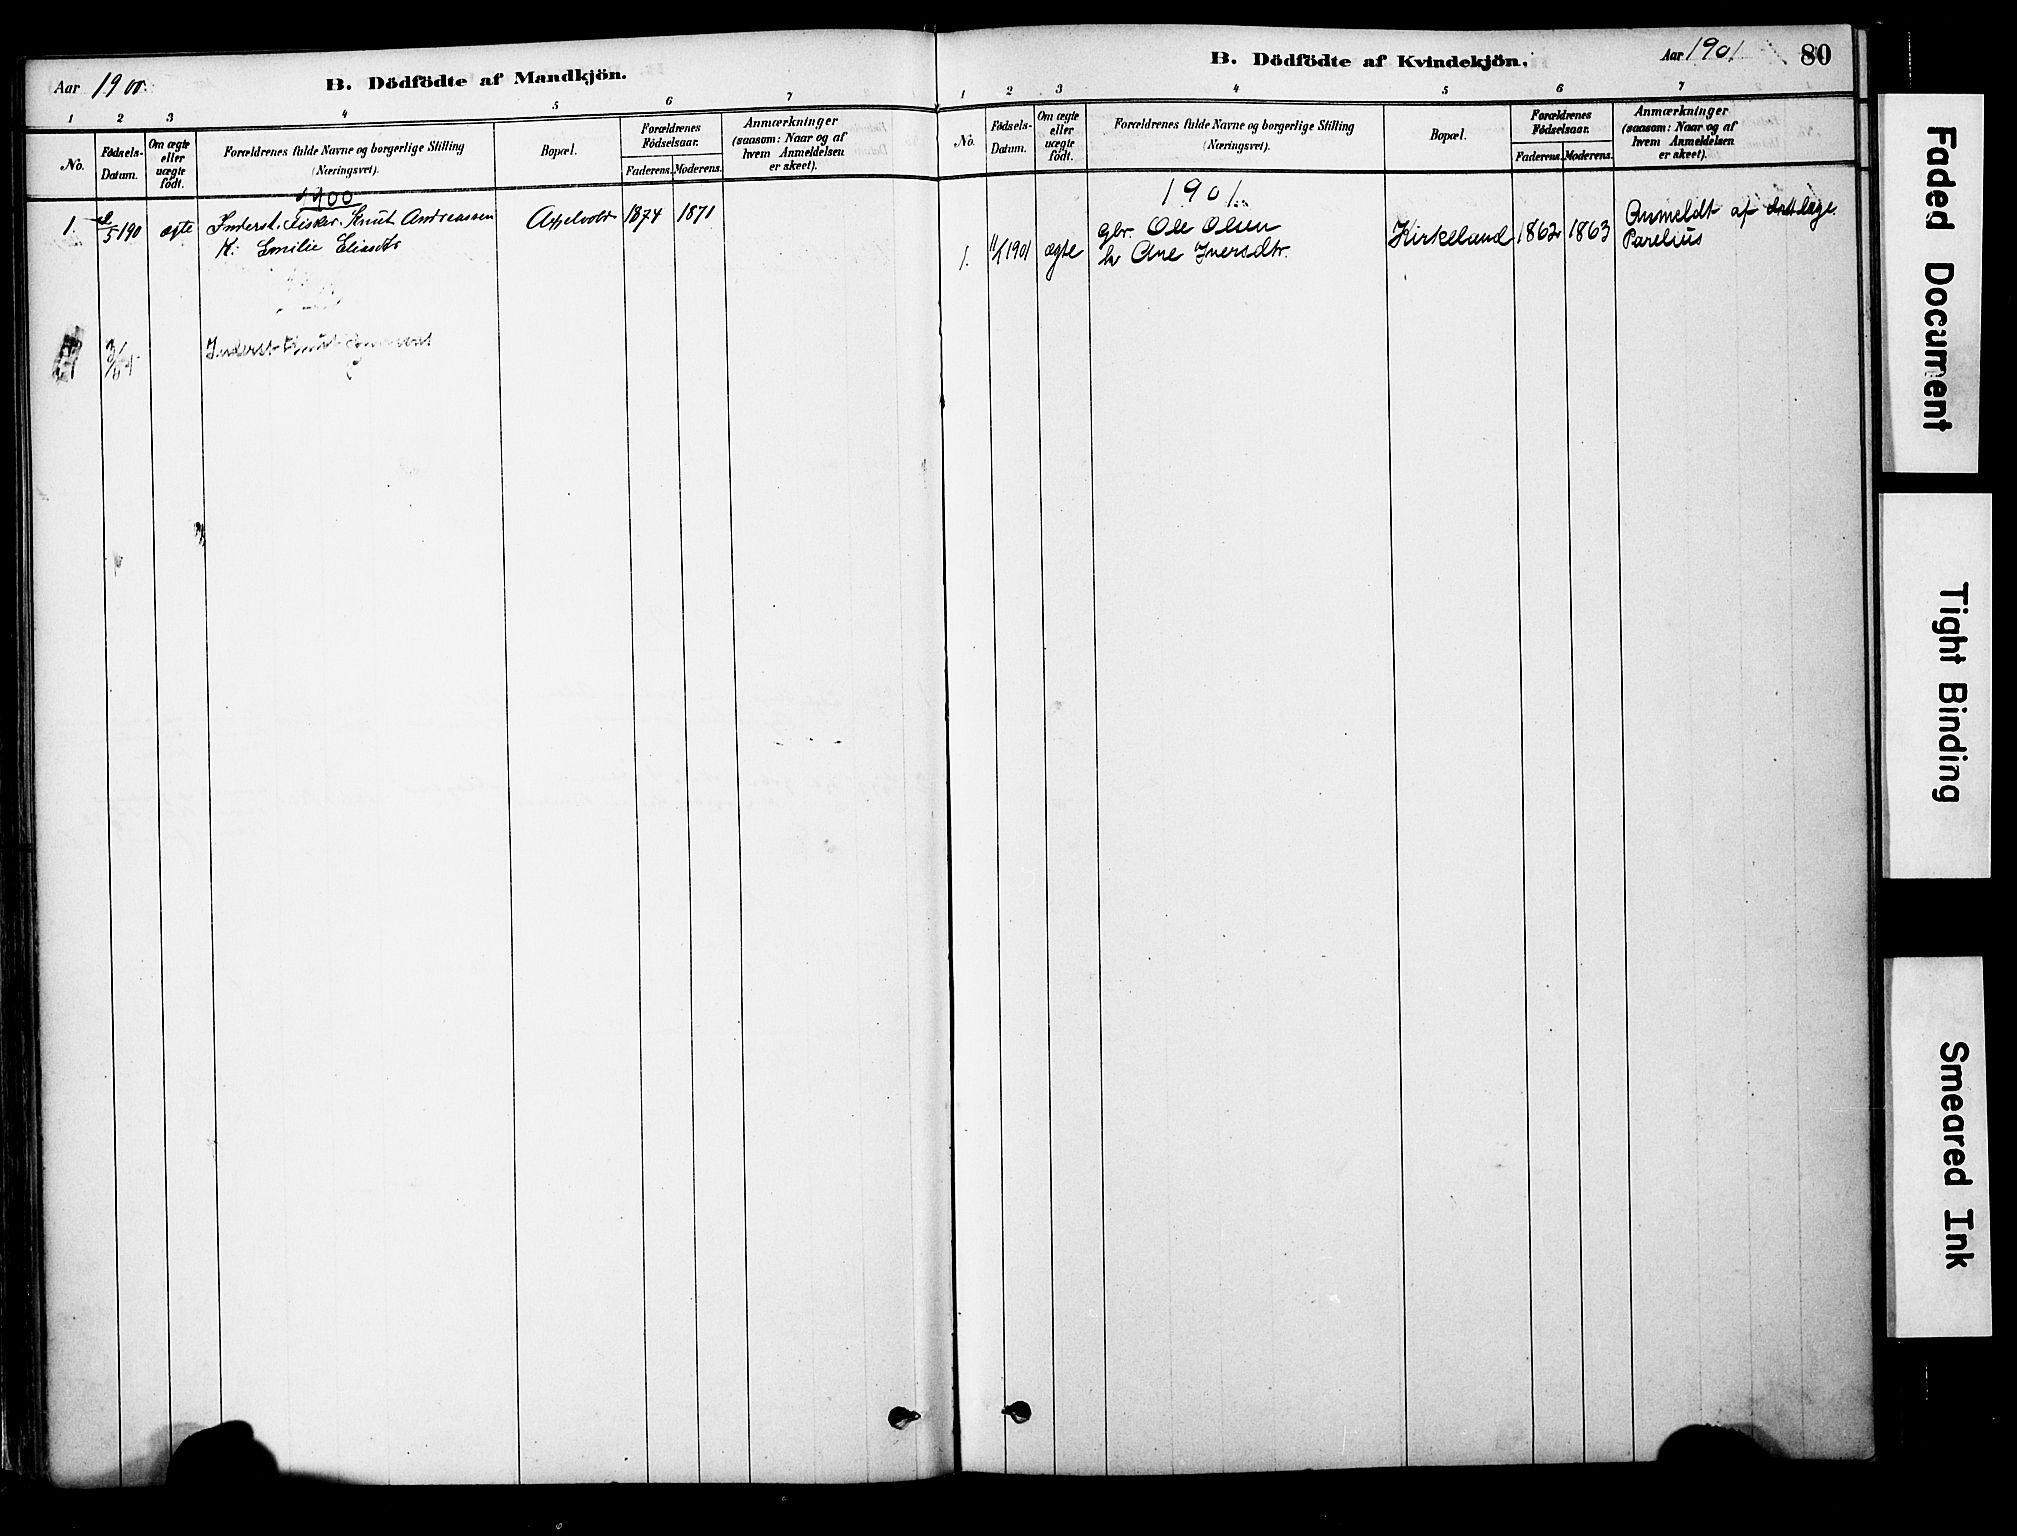 Aar 1900.
B. Dödfödte af Mandkjön.
1 2 3 4 5 6 7
No.
Födsels-
Datum.
Om ægte
eller
uægte
födt.
Forældrenes fulde Navne og borgerlige Stilling
(Næringsvei).
Bopæl.
Forældrenes
Födselsaar.
Faderens. Moderens.
Anmærkninger
(saasom: Naar og af
hvem Anmeldelsen
er skeet).
1900
1. /5 190 ægte Inderst. Fisker. Knut Andreassen Axelvold 1874 1871
K: Emilie Eliasdtr
Inderst Knut
B. Dödfödte af Kvindekjön.
Aar 1901
80
1 2 3 4 5 6 7
No.
Födsels-
Datum.
Om ægte
eller
uægte
födt.
Forældrenes fulde Navne og borgerlige Stilling
(Næringsvei).
Bopæl.
Forældrenes
Födselsaar.
Faderens. Moderens.
Anmærkninger
(saasom: Naar og af
hvem Anmeldelsen
er skeet).
1901.
1. 11/1 1901 ægte gbr. Ole Olsen Kirkeland 1862 1863 Anmeldt af
h Ane Iversdtr. Parelius
Faded Document
Tight Binding
Smeared Ink